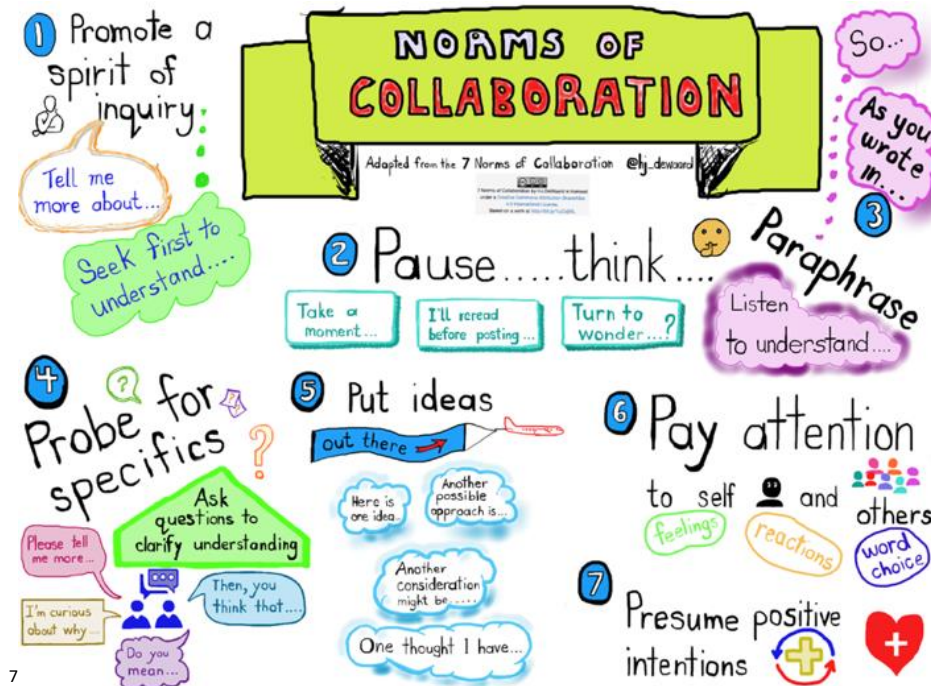 NORMS OF
COLLABORATION
Adapted from the 7 Norms of Collaboration @hj_dewaard
1 Promote a
spirit of
inquiry
Tell me
more about...
Seek first to
understand....
2 Pause.....think....
Take a
moment...
I'll reread
before posting...
Turn to
wonder...?
So...
As you
wrote
in...
3
Paraphrase
Listen
to understand....
4
?
Probe for
specifics
?
Ask
questions to
clarify understanding
Please tell
me more...
I'm curious
about why...
Then, you
think that....
Do you
mean....
5 Put ideas
out there
Here is
one idea..
Another
possible
approach is...
Another
consideration
might be.....
One thought I have...
6 Pay attention
to self and
others
feelings
reactions
word
choice
7 Presume positive
intentions
7